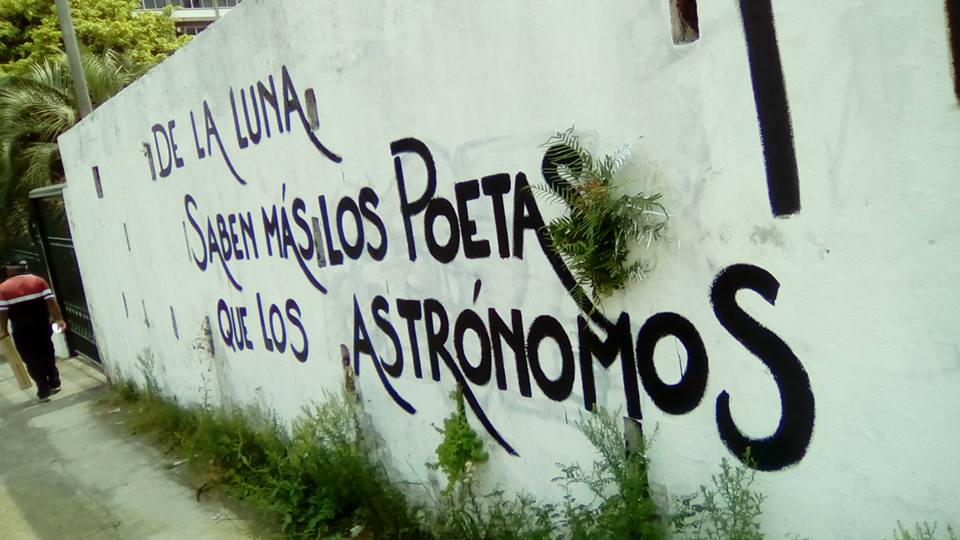 DE LA LUNA
SABEN MÁS LOS POETAS
QUE LOS ASTRÓNOMOS